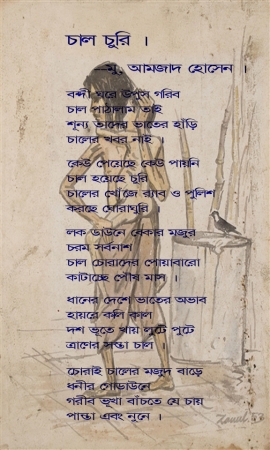 চাল চুরি ।
মু. আমজাদ হোসেন ।
বন্দী ঘরে উপুস গরিব
চাল পাঠালাম তাই
শূন্য তাদের ভাতের হাঁড়ি
চালের খবর নাই ।
কেউ পেয়েছে কেউ পায়নি
চাল হয়েছে চুরি
চালের খোঁজে র‍্যাব ও পুলিশ
করছে ঘোরাঘুরি
লক ডাউনে বেকার মজুর
চরম সর্বনাশ
চাল চোরাদের পোয়াবারো
কাটাচ্ছে পৌষ মাস ।
ধানের দেশে ভাতের অভাব
হায়রে কলি কাল
দশ ভূতে খায় লুটে পুটে
ত্রাণের সস্তা চাল ।
চোরাই চালের মজুদ বাড়ে
ধনীর গোডাউনে
গরীব ভূখা বাঁচতে যে চায়
পান্তা এবং নুনে ।